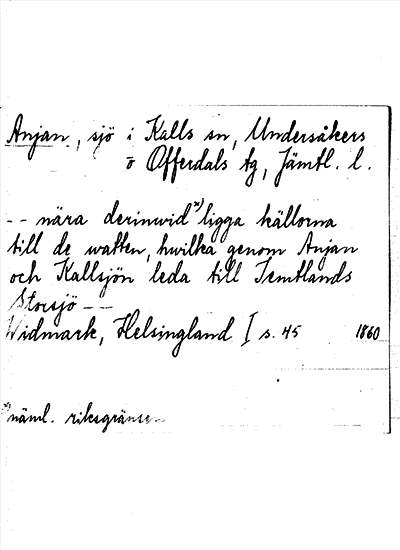 Anjan, sjö i Kalls sn, Undersåkers
o Offerdals tg, Jämtl. l.
-- nära derinwid x) ligga källorna
till de watten, hwilka genom Anjan
och Kallsjön leda till Jemtlands
Storsjö --
Widmark, Helsingland I s. 45 1860
x) näml. riksgränsen